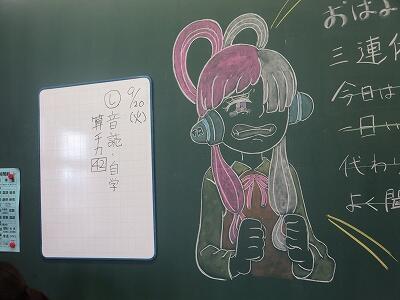 9/20(火)
Ⓛ音読・自学
算チカ42
おはよ
三連休
今日は
一日
代わ
よく聞